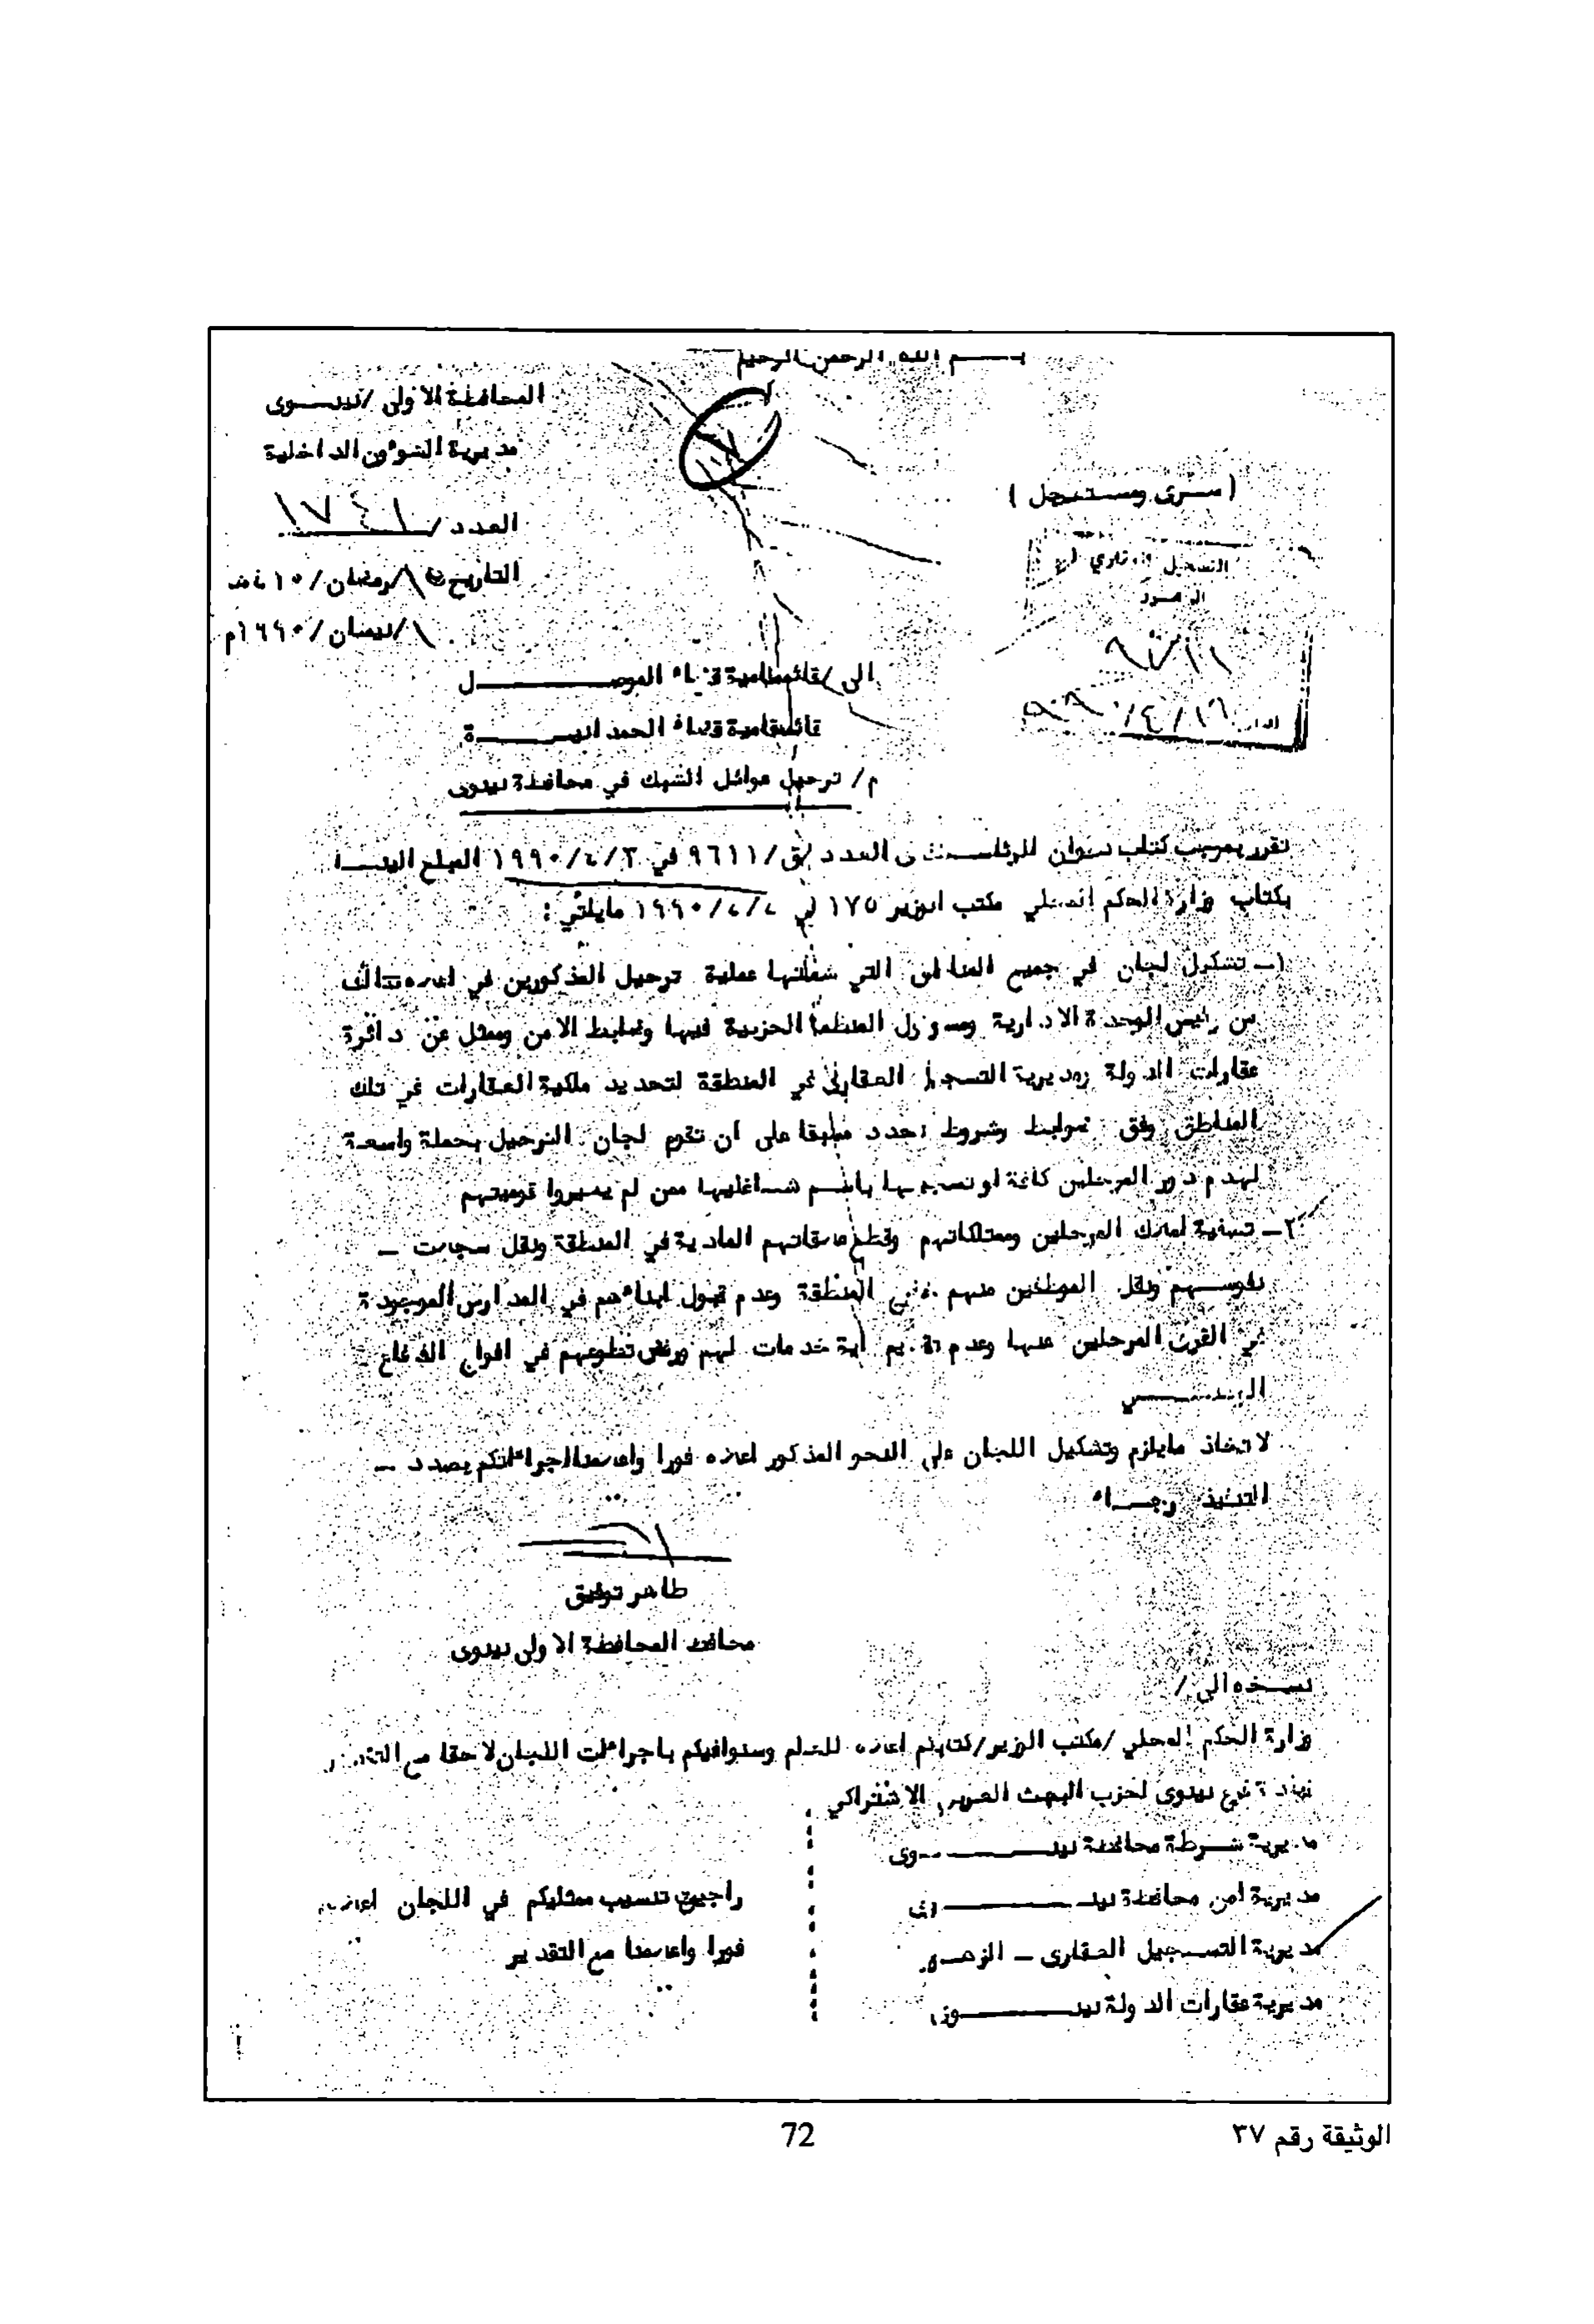 بسم الله الرحمن الرحيم
المحافظة الاولى/نينوى
مديرية الشؤون الداخلية
(سري ومستعجل)
العدد/ ١٧٤١
التاريخ /رمضان/١٤١٠هـ
/نيسان/١٩٩٠م
التسجيل العقاري
١٦/٤/
الى/قائممقامية قضاء الموصل
قائممقامية قضاء الحمدانية
م/ ترحيل عوائل الشبك في محافظة نينوى
تقرر بموجب كتاب ديوان الرئاسة العدد /ق/٩٦١١ في ١٩٩٠/٤/٣ المبلغ الينا
بكتاب وزارة الحكم المحلي مكتب الوزير ١٧٥ في ١٩٩٠/٤/٤ مايلي :
١- تشكيل لجان في جميع المناطق التي شملتها عملية ترحيل المذكورين في اعلاه تتألف
من رئيس الوحدة الادارية ومسؤول المنظمة الحزبية فيها وضابط الامن وممثل عن دائرة
عقارات الدولة ومديرية التسجيل العقاري في المنطقة لتحديد ملكية العقارات في تلك
المناطق وفق ضوابط وشروط تحدد مسبقا على ان تقوم لجان الترحيل بحملة واسعة
لهدم دور المرحلين كافة او تسجيلها باسم شاغليها ممن لم يغيروا قوميتهم
٢- تصفية املاك المرحلين وممتلكاتهم وقطع علاقاتهم المادية في المنطقة ونقل سجلات -
نفوسهم ونقل الموظفين منهم المنطقة وعدم قبول ابناءهم في المدارس الموجودة
في القرى المرحلين عنها وعدم تقديم اية خدمات لهم ورفض تطوعهم في افواج الدفاع -
لاتخاذ مايلزم وتشكيل اللجان على النحو المذكور اعلاه فورا واعلامنا اجراءاتكم بصدد -
التنفيذ رجاء
طاهر توفيق
محافظ المحافظة الاولى نينوى
نسخه الى/
وزارة الحكم المحلي/مكتب الوزير/كتابكم اعلاه للعلم وسنوافيكم باجراءات اللجان لاحقا مع التقدير
قيادة فرع نينوى لحزب البعث العربي الاشتراكي
مديرية شرطة محافظة نينوى
مديرية امن محافظة نينوى
راجين تنسيب ممثليكم في اللجان اعلاه
مديرية التسجيل العقاري - الزهور
فورا واعلامنا مع التقدير
مديرية عقارات الدولة نينوى
الوثيقة رقم ٣٧
72